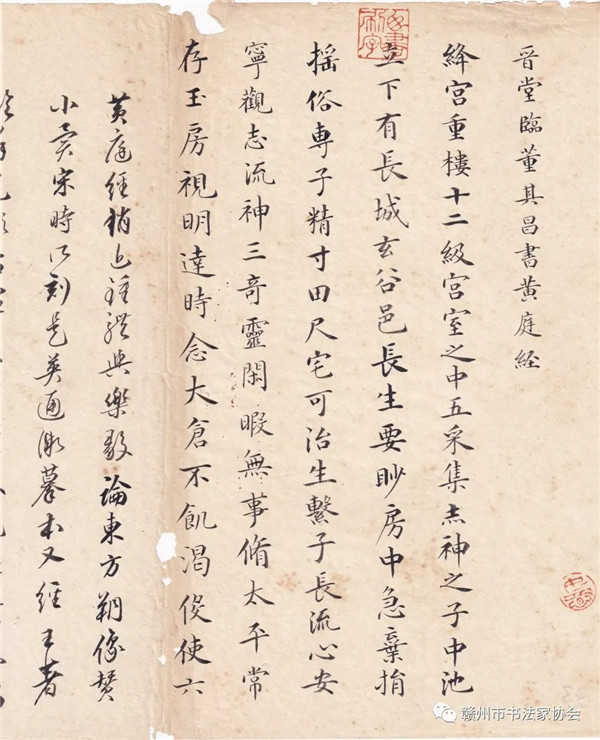 晋堂臨董其昌書黄庭経
絳宫重樓十二級宫室之中五采集赤神之子中池
立下有長城玄谷邑長生要眇房中急棄捐
揺俗専子精寸田尺宅可治生繫子長流心安
寧觀志流神三奇靈閑暇無事脩太平常
存玉房視明達時念大倉不飢渴役使六
黄庭経稍近鍾體與樂毅論東方朔像賛
小異宋時所刻是英通微摹本又經王著
赣州市书法家协会